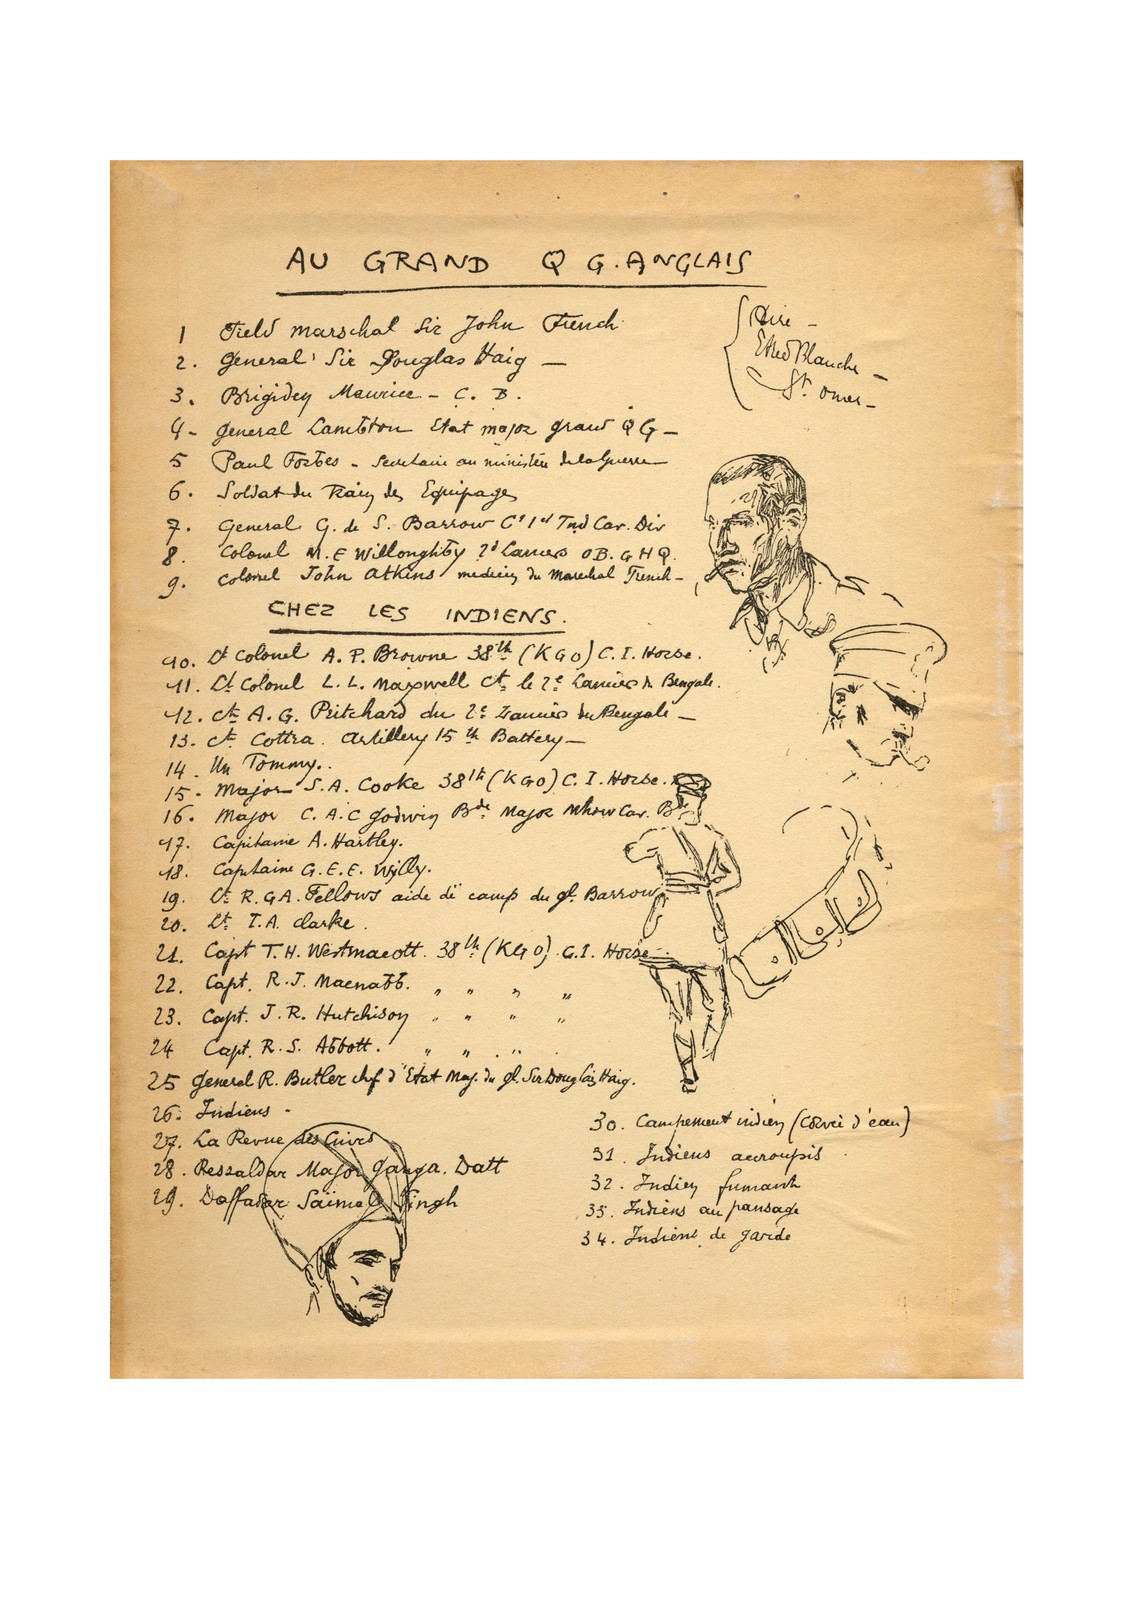 AU GRAND Q G. ANGLAIS
1 Field marschal Sir John French
2. General Sir Douglas Haig —
3. Brigidey Maurice - C. B.
4 - General Lambton Etat major grand Q G —
5 Paul Forbes - Secretaire au ministère de la Guerre —
6. Soldat du Train des Equipages
7. General G. de S. Barrow Ct 1st Ind Cav. Div
8. Colonel M. E Willoughby 2d Lanciers OB. G H Q.
9. Colonel John Atkins medecin du Marechal French -
Aire -
Blanche -
St. Omer -
CHEZ LES INDIENS.
10. Lt Colonel A. P. Browne 38th (KGO) C. I. Horse.
11. Lt Colonel L. L. Maxwell Ct le 2e Lanciers du Bengale.
12. Ct A. G. Pritchard du 2e Lanciers du Bengale —
13. Ct Cottra. Artillery 15th Battery —
14. Un Tommy..
15. Major S. A. Cooke 38th (KGO) C. I. Horse.
16. Major C. A. C Godwin Bde Major Mhow Car. Bde
17. Capitaine A. Hartley.
18. Capitaine G. E. E. Willy.
19. Lt R. GA. Fellows aide de camp du gl. Barrow
20. Lt I. A. clarke.
21. Capt T. H. Westmacott. 38th (KGO) C. I. Horse
22. Capt. R. J. Macnabb. " " " "
23. Capt. J. R. Hutchison " " " "
24 Capt. R. S. Abbott. " " "
25 General R. Butler chf d'Etat Maj. du gl. Sir Douglas Haig.
26. Indiens -
27. La Revue des Cuirs
28. Reszaldar Major Ganga. Datt
29. Daffadar Singh
30. Campement indien (Corvée d'eau)
31. Indiens accroupis
32. Indien fumant
33. Indiens au pansage
34. Indiens de garde